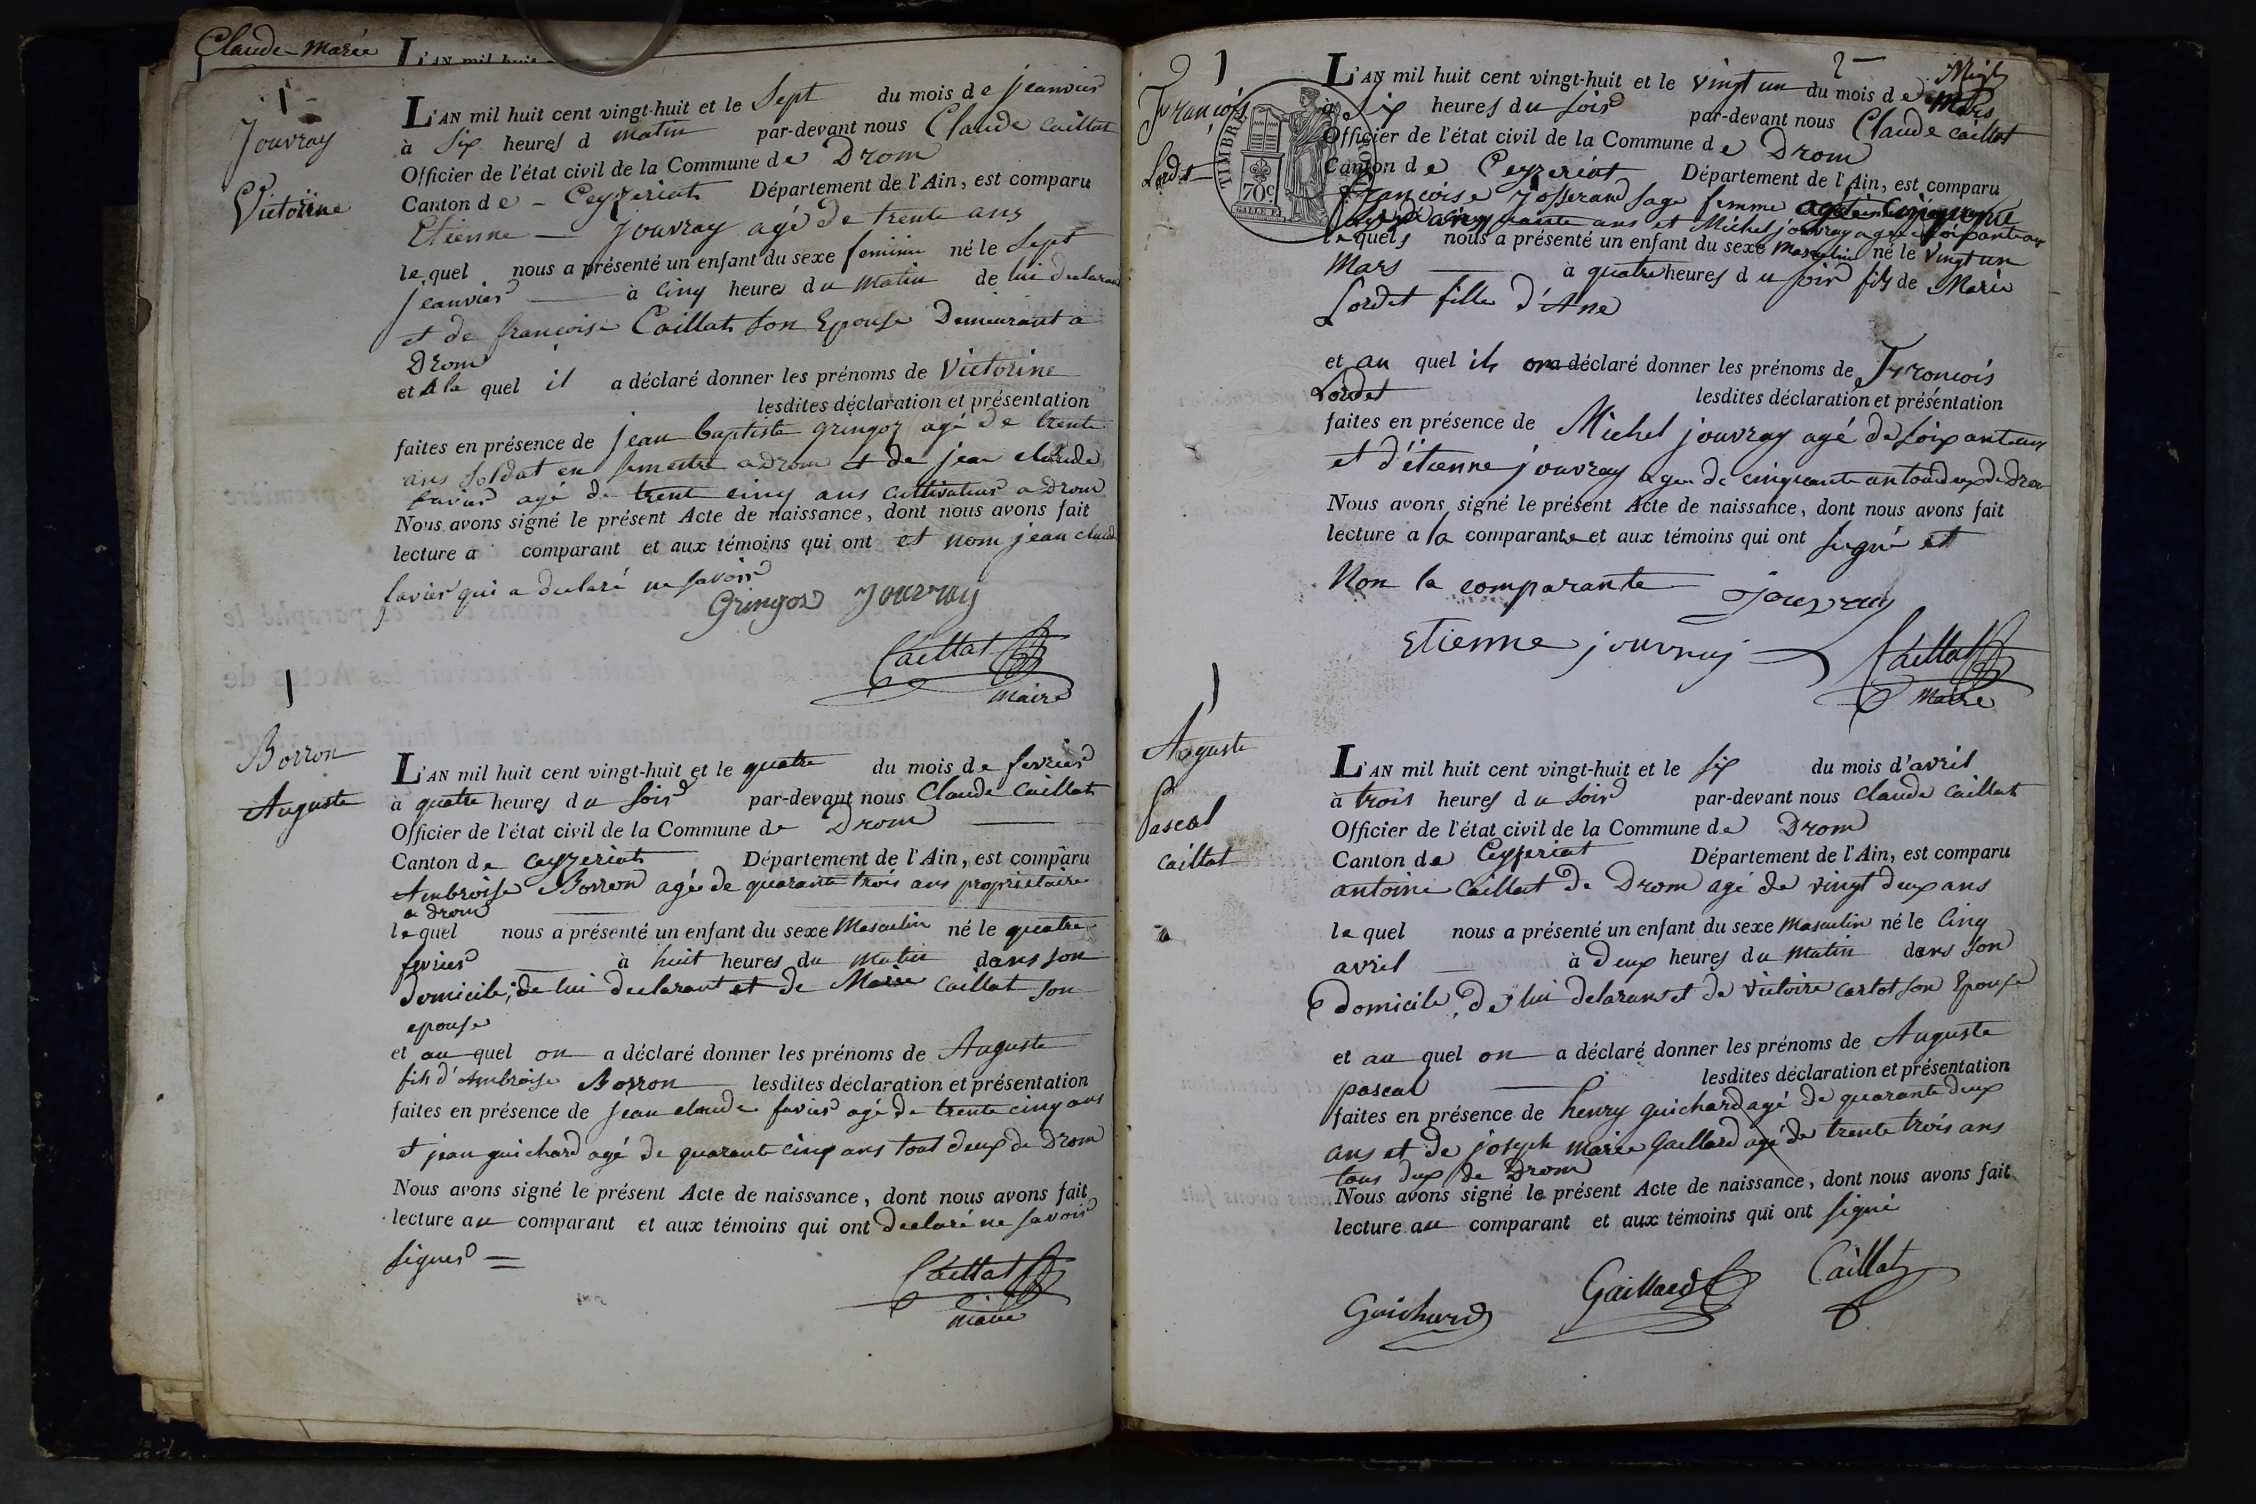 Claude Marie
L'AN mil huit
1
Jouvray
Victorine
L'AN mil huit cent vingt-huit et le Sept du mois de jeanvier
à Six heures d matin par-devant nous Claude Caillat
Officier de l'état civil de la Commune de Drom
Canton de - Ceyzeriat Département de l'Ain, est comparu
Etienne Jouvray agé de trente ans
lequel nous a présenté un enfant du sexe feminin né le Sept
jeanvier à cinq heures du matin de lui declarant
et de francoise Caillat son Epouse Demeurant a
Drom
et A la quel il a déclaré donner les prénoms de Victorine
lesdites déclaration et présentation
faites en présence de jean baptiste gringoz agé de trente
ans soldat en semestre a Drom et de jean claude
favier agé de trent cinq ans cultivateur a Drom
Nous avons signé le présent Acte de naissance, dont nous avons fait
lecture a comparant et aux témoins qui ont et nom jean claude
favier qui a declaré ne savoir
Gringoz Jouvray
Caillat
maire
1
Borron
Auguste
L'AN mil huit cent vingt-huit et le quatre du mois de fevrier
à quatre heures du soir par-devant nous Claude Caillat
Officier de l'état civil de la Commune de Drom
Canton de ceyzeriat Département de l'Ain, est comparu
Ambroise Borron agé de quarante trois ans proprietaire
a drom
lequel nous a présenté un enfant du sexe Masculin né le quatre
fevrier à huit heures du matin dans son
domicile, de lui declarant et de Marie Caillat son
epouse
et au quel on a déclaré donner les prénoms de Auguste
fils d'Ambroise Borron lesdites déclaration et présentation
faites en présence de jean claude favier agé de trente cinq ans
et jean guichard agé de quarante cinq ans tout deux de Drom
Nous avons signé le présent Acte de naissance, dont nous avons fait
lecture au comparant et aux témoins qui ont declaré ne savoir
signer =
Caillat
maire
1
François
Lordet
TIMBRE
70c
2
L'AN mil huit cent vingt-huit et le vingt un du mois de Mars
à six heures du soir par-devant nous Claude Caillat
Officier de l'état civil de la Commune de Drom
Canton de Ceyzeriat Département de l'Ain, est comparu
françoise josserand sage femme
cinquante ans et Michel jouvray agé de soixante ans
lequels nous a présenté un enfant du sexe masculin né le vingt un
Mars à quatre heures du soir fils de Marie
Lordet fille d'Ane
et au quel ils ona déclaré donner les prénoms de François
Lordet lesdites déclaration et présentation
faites en présence de Michel jouvray agé de soixante ans
et d'étienne jouvray agée de cinquante an de drom
Nous avons signé le présent Acte de naissance, dont nous avons fait
lecture a la comparante et aux témoins qui ont signé et
Non la comparante jouvray
Etienne jouvray Caillat
Maire
1
Auguste
Pascal
Caillat
L'AN mil huit cent vingt-huit et le six du mois d'avril
à trois heures du soir par-devant nous Claude Caillat
Officier de l'état civil de la Commune de Drom
Canton de Ceyzeriat Département de l'Ain, est comparu
antoine Caillat de Drom agé de vingt deux ans
lequel nous a présenté un enfant du sexe masculin né le Cinq
avril à Deux heures du matin dans son
domicile, de lui delarant et de victoire cartot son Epouse
et au quel on a déclaré donner les prénoms de Auguste
pascal lesdites déclaration et présentation
faites en présence de henry guichard agé de quarante deux
ans et de joseph marie Gaillard agé de trente trois ans
tous deux de Drom
Nous avons signé le présent Acte de naissance, dont nous avons fait
lecture au comparant et aux témoins qui ont signé
Guichard Gaillard Caillat